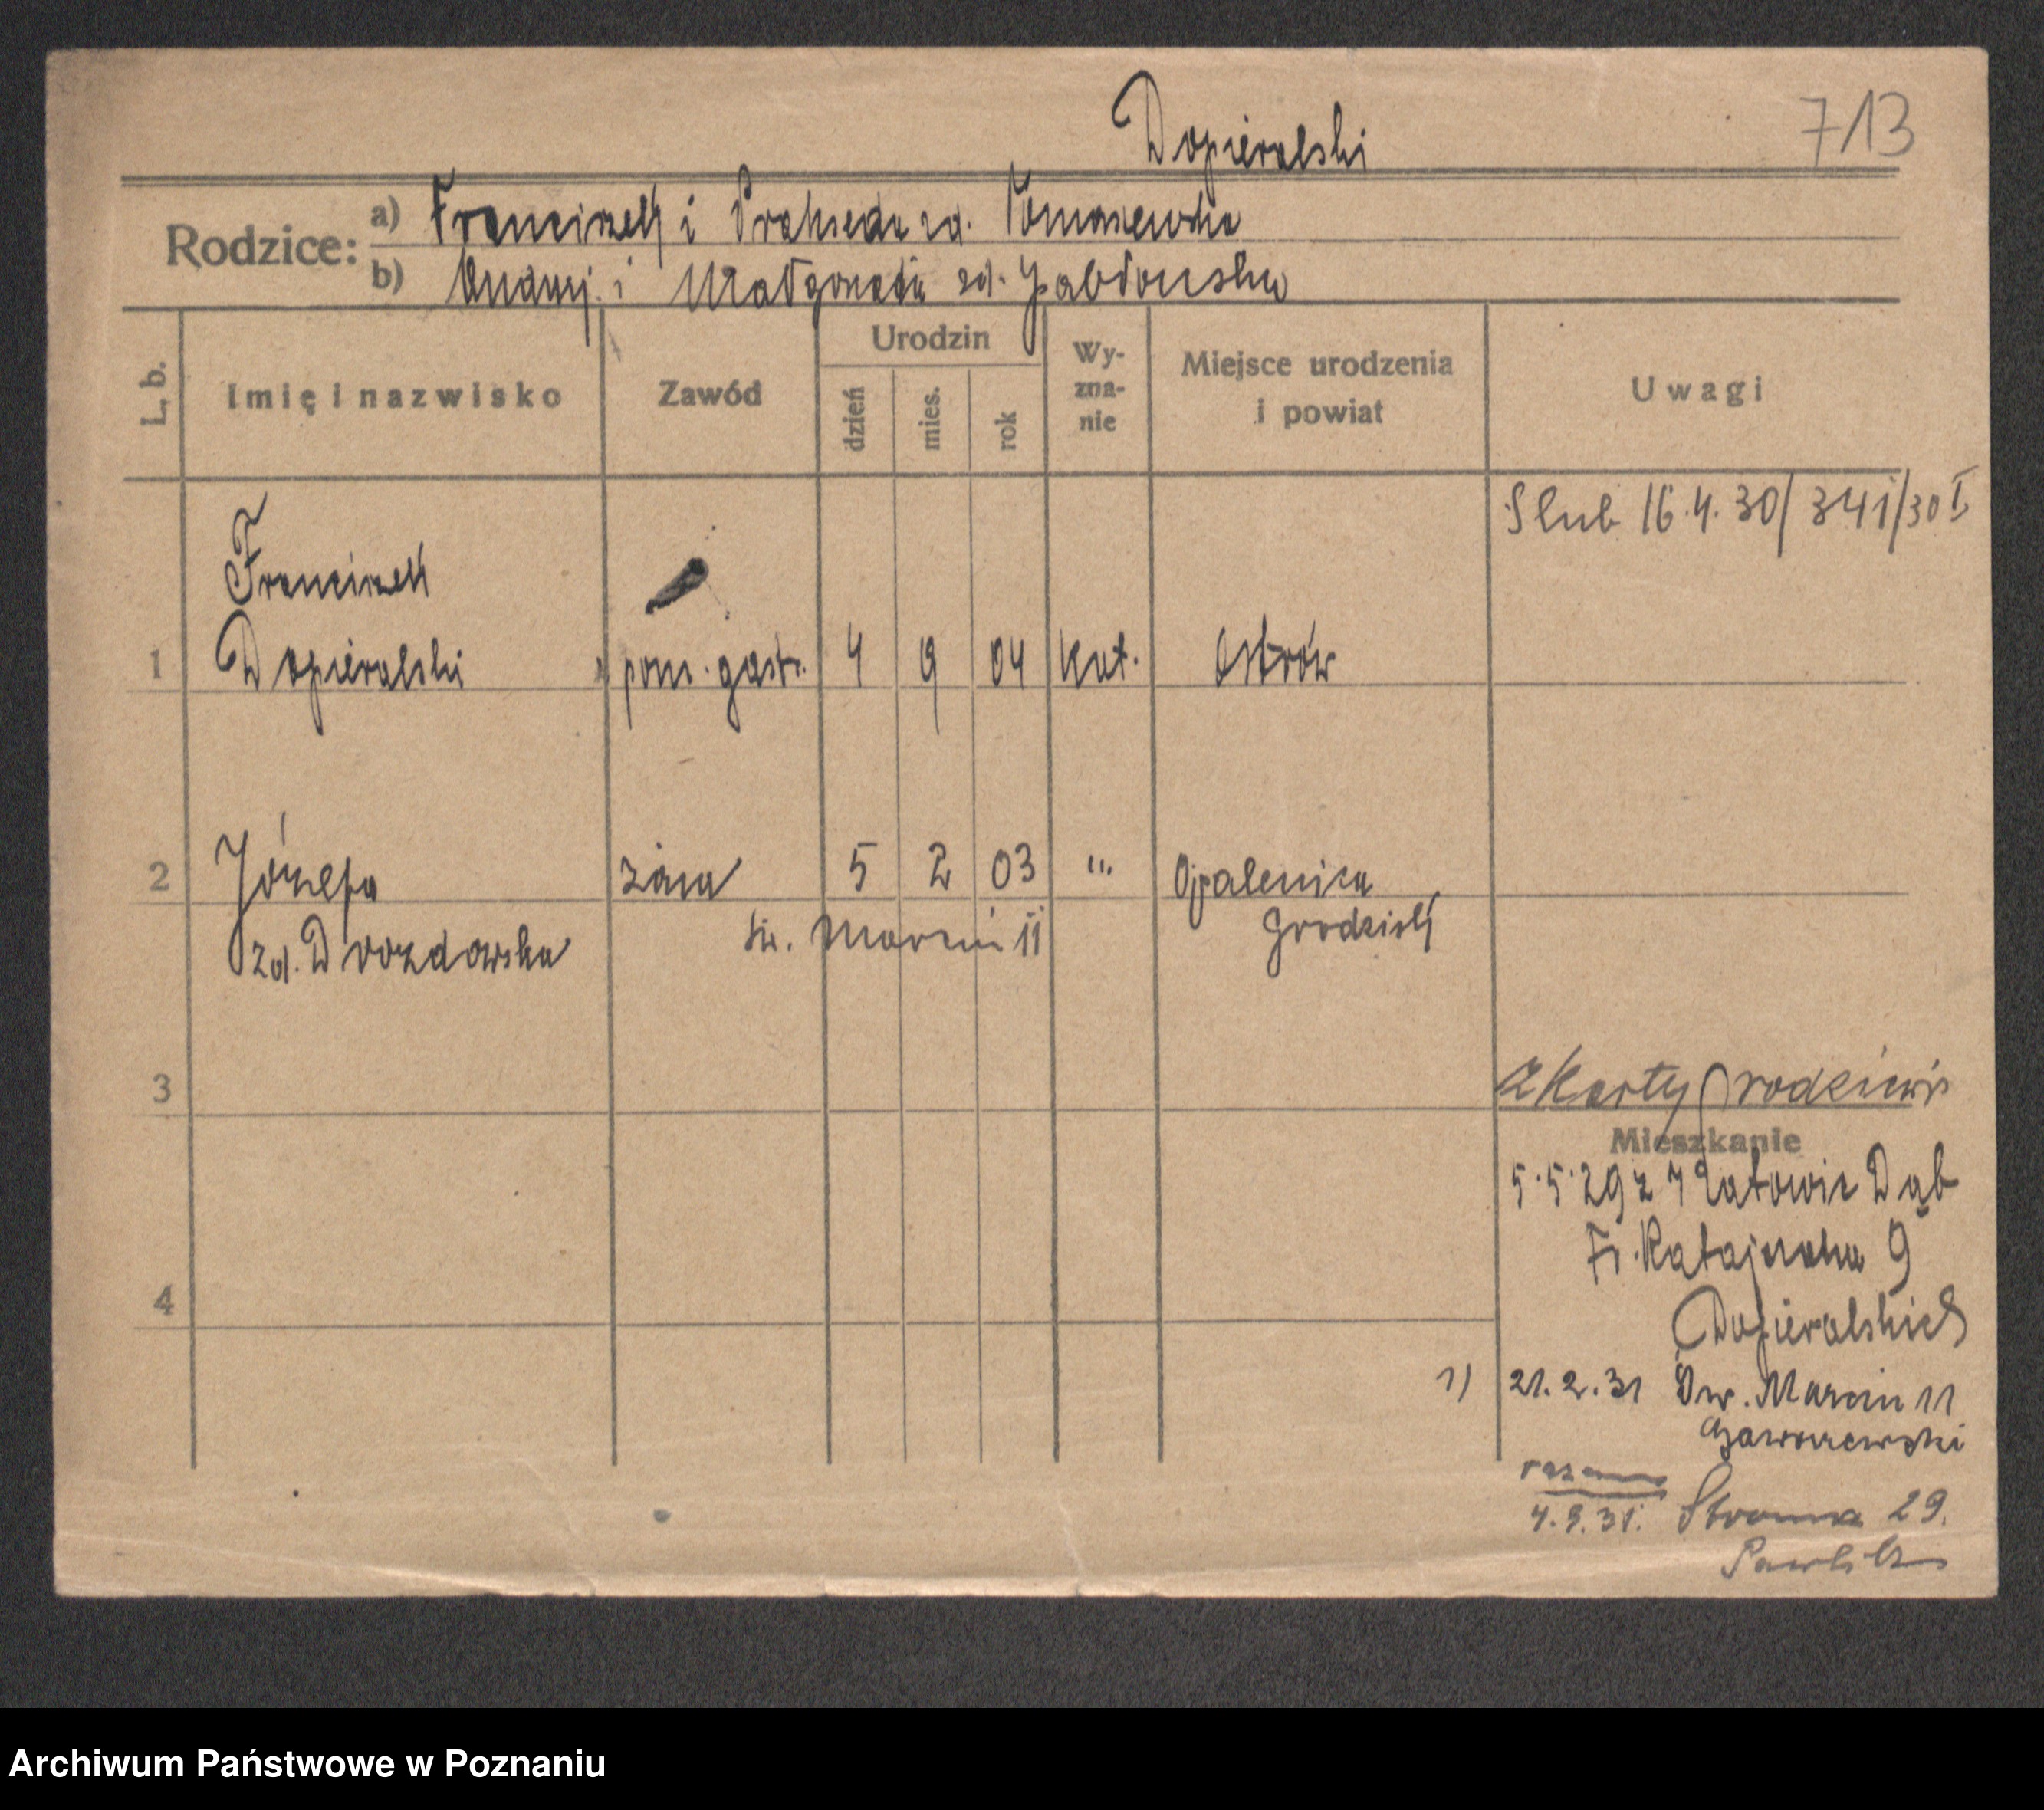 Dopieralski
713
Rodzice:
a) Franciszek i Prakseda zd. Tomaszewska
b) Andrzej i Małgorzata zd. Jabłońska
L, b.
Imię i nazwisko
Zawód
Urodzin
dzień
mies.
rok
Wy-
zna-
nie
Miejsce urodzenia
i powiat
Uwagi
Slub 16.4.30/341/30 I
Franciszek
1 Dopieralski pom. gastr. 4 9 04 kat. Ostrów
2 Józefa żona 5 2 03 " Opalenica
zd. Drozdowska Św. Marcin 11 Grodzisk
3
z karty rodziców
Mieszkanie
5.5.29 z Katowic Dąb
Fr. Ratajczaka 9
4
Dopieralskich
1) 21.2.31 Św. Marcin 11
razem
4.9.31. Stroma 29.
Archiwum Państwowe w Poznaniu